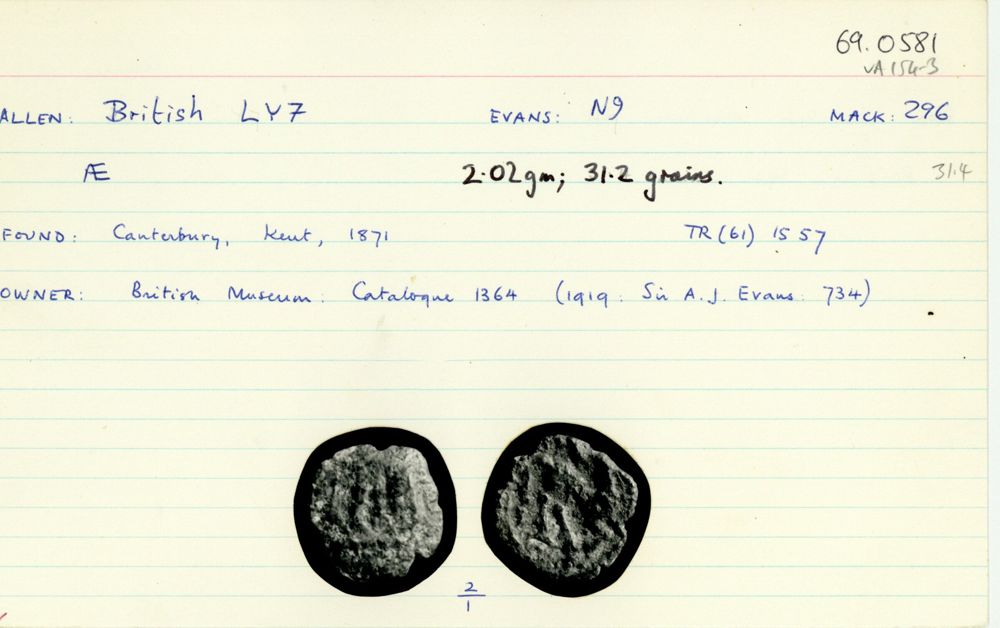 69.0581
VA 154-3
ALLEN: British LY7 EVANS: N9 MACK: 296
Æ 2.02gm; 31.2 grains. 31.4
FOUND: Canterbury, Kent, 1871 TR(61) 15 57
OWNER: British Museum: Catalogue 1364 (1919: Sir A.J. Evans: 734)
2
1